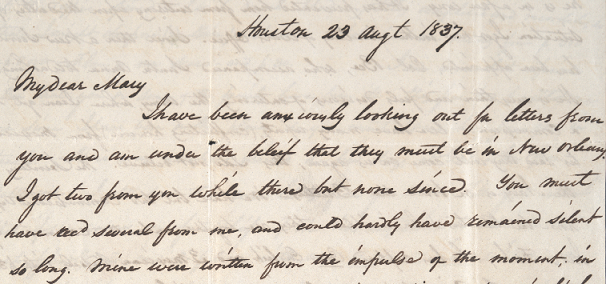 Houston 23 Augt 1837.
My dear Mary
I have been anxiously looking out for letters from
you and am under the beleif that they must be in New Orleans,
I got two from you while there but none since. You must
have recd several from me, and could hardly have remained silent
so long. Mine were written from the impulse of the moment, in